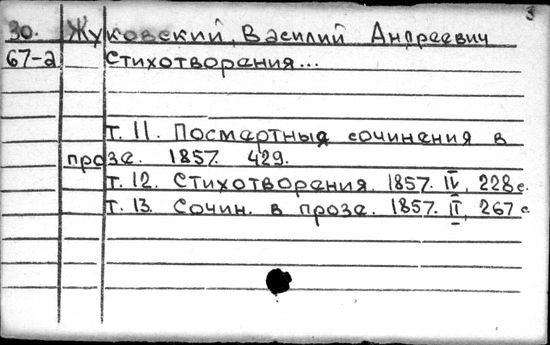 3
30. Жуковский, Василий Андреевич
67-2 Стихотворения...
т. 11. Посмертные сочинения в
прозе. 1857. 429.
т. 12. Стихотворения. 1857. IV, 228 с.
т. 13. Сочин. в прозе. 1857. II, 267 с.